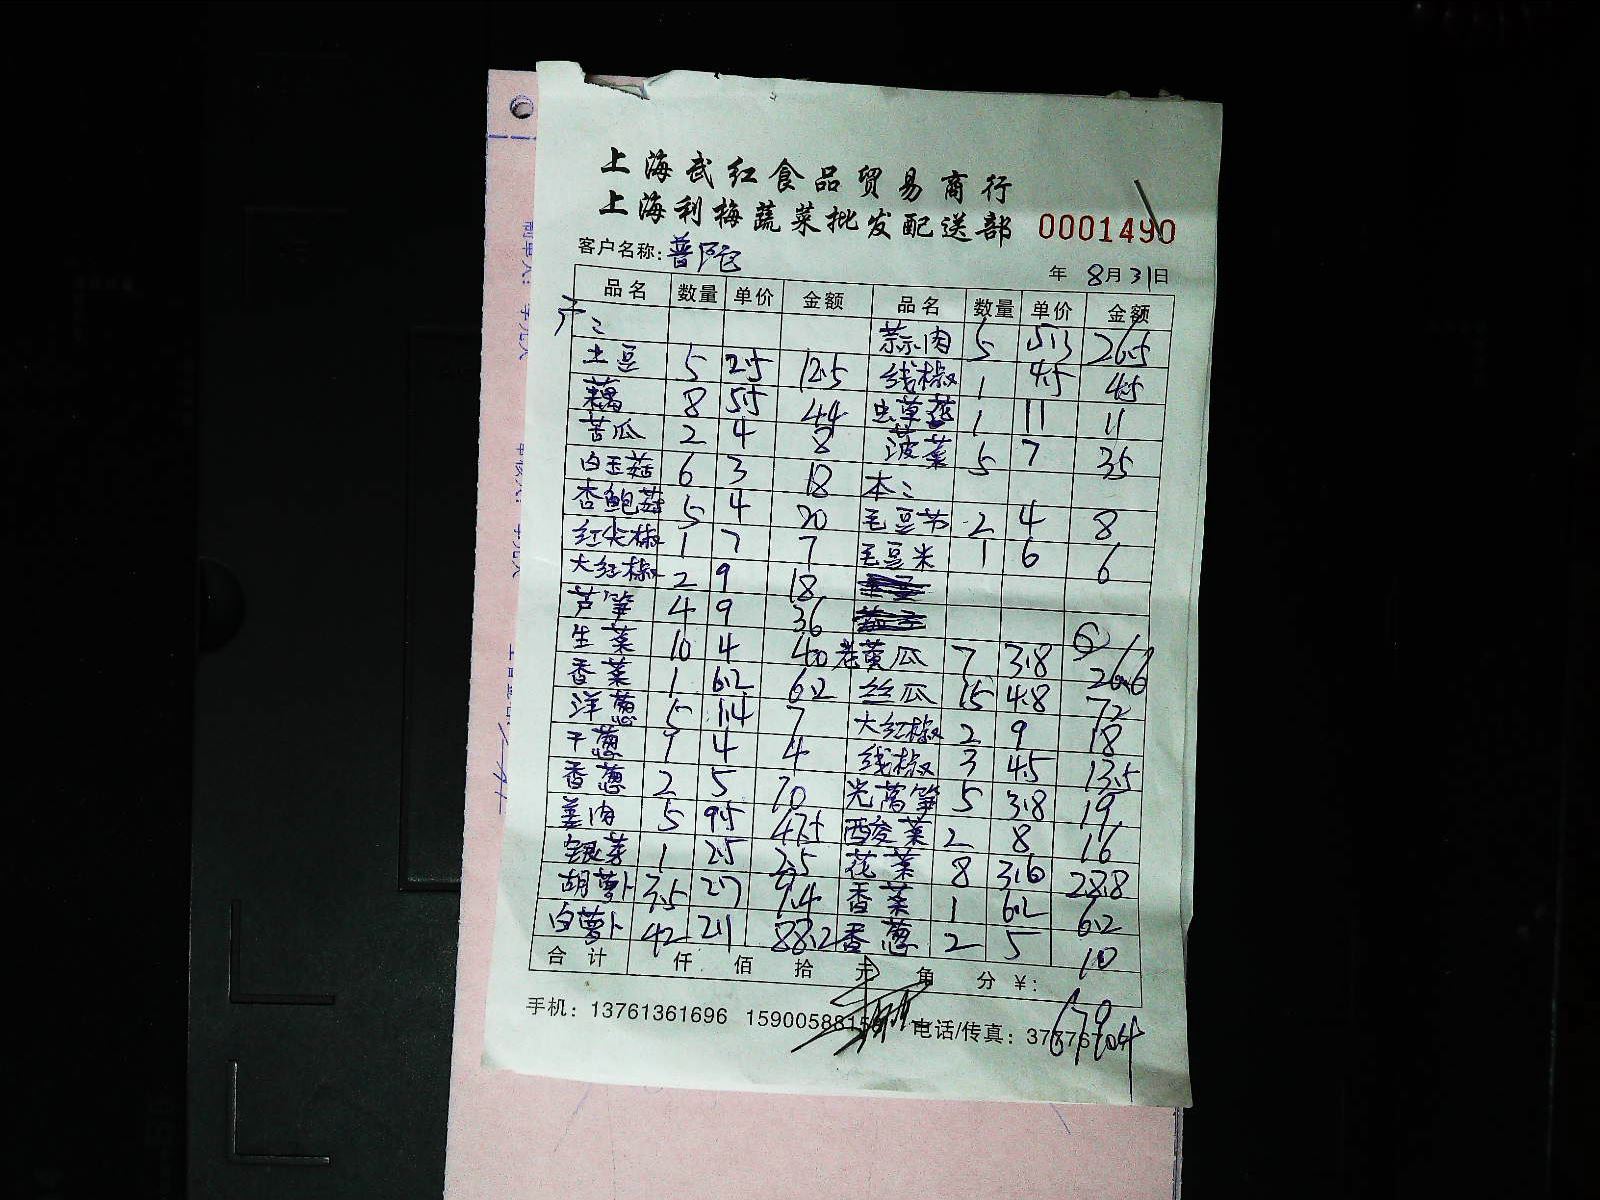 上海武红食品贸易商行
上海利梅蔬菜批发配送部 0001490
客户名称: 普陀
年 8月31日
品名 数量 单价 金额 品名 数量 单价 金额
蒜肉 5 5.3 26.5
土豆 5 2.5 12.5 线椒 1 4.5 4.5
藕 8 5.5 44 虫草花 1 11 11
苦瓜 2 4 8 菠菜 5 7 35
白玉菇 6 3 18 本:
杏鲍菇 5 4 20 毛豆节 2 4 8
红尖椒 1 7 7 毛豆米 1 6 6
大红椒 2 9 18
芦笋 4 9 36
生菜 10 4 40 老黄瓜 7 3.8 26.6
香菜 1 6.2 6.2 丝瓜 15 4.8 72
洋葱 5 1.4 7 大红椒 2 9 18
干葱 1 4 4 线椒 3 4.5 13.5
香葱 2 5 10 光莴笋 5 3.8 19
姜肉 5 9.5 47.5 酸菜 2 8 16
银芽 1 2.5 2.5 花菜 8 3.6 28.8
胡萝卜 3.5 2.7 9.4 香菜 1 6.2 6.2
白萝卜 42 2.1 88.2 香葱 2 5 10
合计 仟 佰 拾 元 角 分 ¥:
手机: 13761361696 电话/传真: